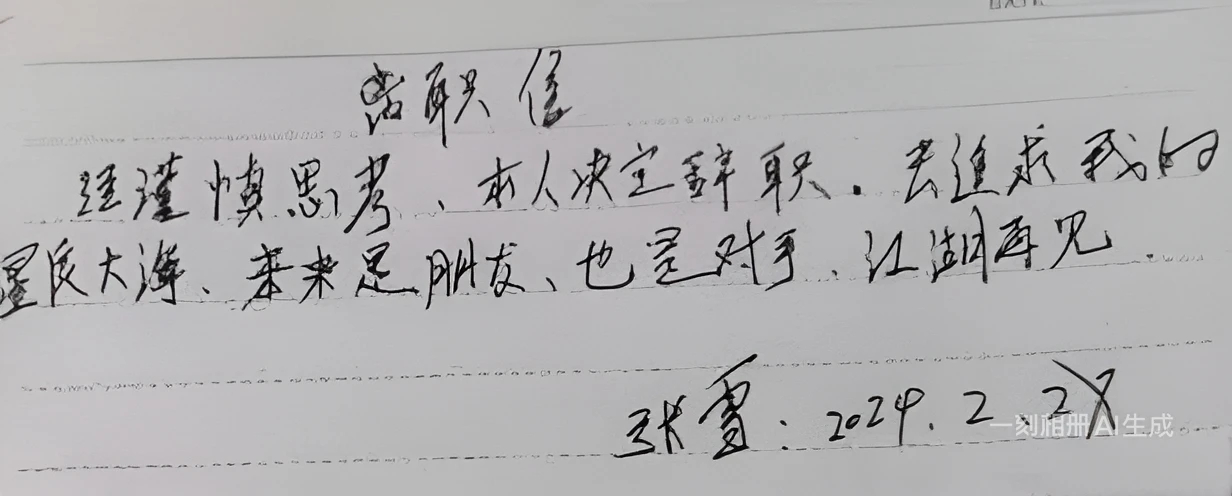 离职信
经谨慎思考、本人决定辞职.去追求我的
星辰大海、未来是朋友、也是对手、江湖再见.
张雪:2024.2.27
一刻相册 AI 生成